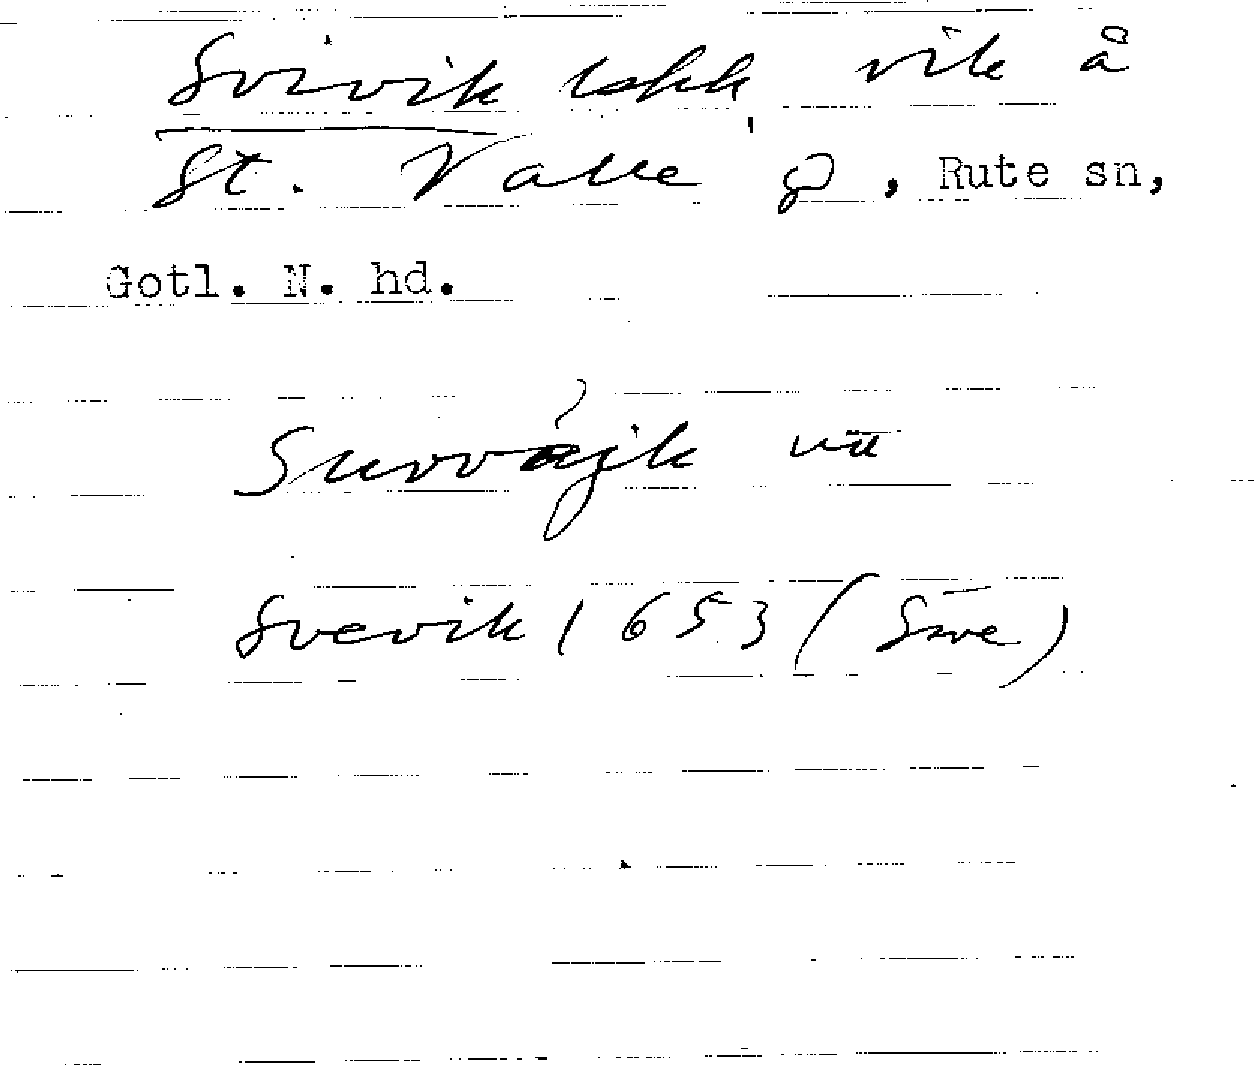 Svivik tskk, vik å
St. Valle g, Rute sn,
Gotl. N. hd.
Suvväjk
Svevik 1653 (Säve)